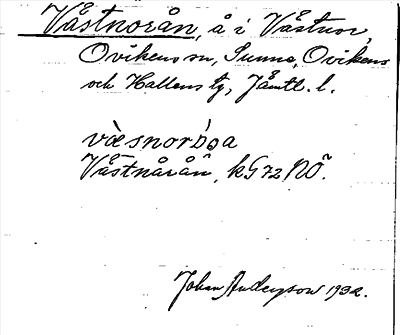 Västnorån, å i Västnor,
Ovikens sn, Sunne, Ovikens
och Hallens tg, Jämtl. l.
Västnårån, kG72NÖ.
Johan Anderson 1932.